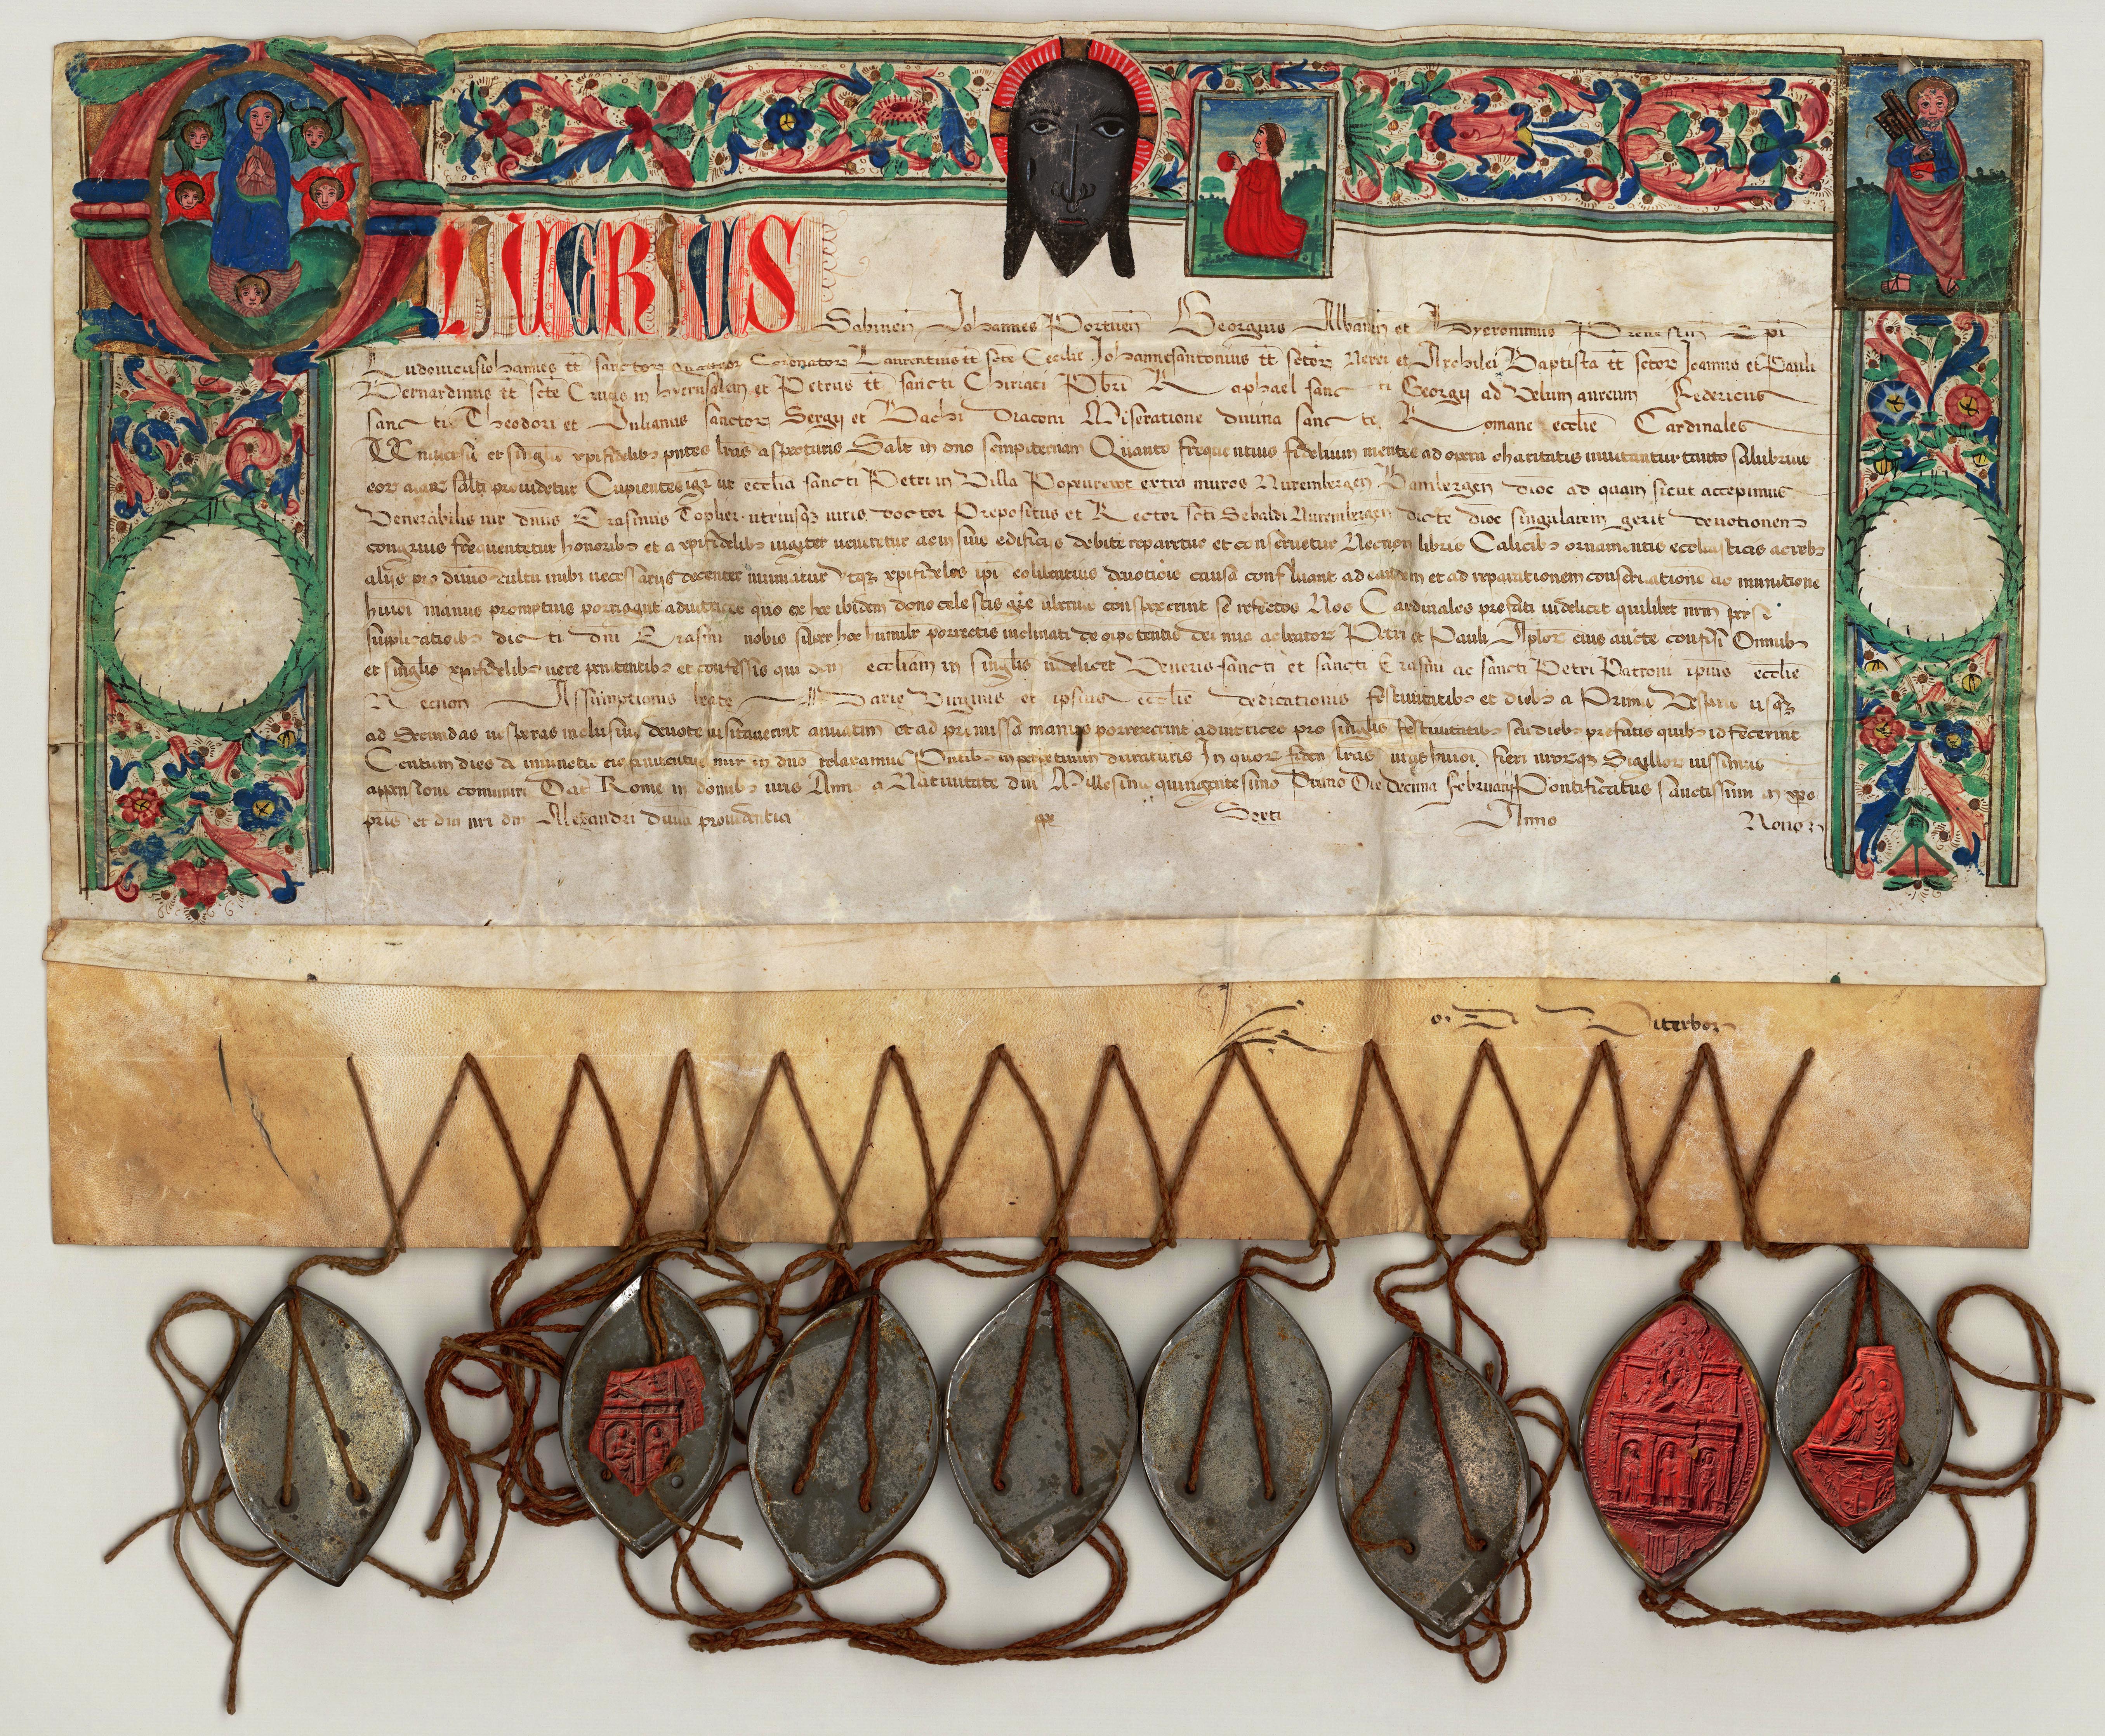 OLIUERIUS
Sabinen̄ Johannes Portuen̄ Georgius Albanen̄ et Hyeronimus Prenestin̄ Ep̄i
Ludouicusiohannes tt̄ sanctor quatuor Coronator Laurentius tt̄ sc̄te Cecilie Johannesantonius tt̄ sc̄tor Nerei et Archilei Baptista tt̄ sc̄tor Joannis et Pauli
Bernardinus tt̄ sc̄te Crucis in hyerusalem et Petrus tt̄ sancti Chiriaci Pbr̄i Raphael sancti Georgij ad Velum aureum Federicus
sancti Theodori et Julianus sanctor Sergij et Bachi Diaconi Miseratione diuina sancte Romane eccl̄ie Cardinales
Uniuersis et singulis xp̄ifidelibꝫ pn̄tes lr̄as inspecturis Salt̄ in dn̄o sempiternam Quanto frequentius fidelium mentes ad opera charitatis inuitantur tanto salubrius
eor aīar saluti prouidetur Cupientes igr̄ ut eccl̄ia sancti Petri in Villa Popenrewt extra muros Nurembergen̄ Bambergen̄ dioc̄ ad quam sicut accepimus
Venerabilis uir dn̄us Erasmus Topler utriusqꝫ iuris doctor Prepositus et Rector sc̄ti Sebaldi Nurembergen̄ dicte dioc̄ singularem gerit deuotionem
congruis frequentetur honoribꝫ et a xp̄ifidelibꝫ iugiter ueneretur ac in suis edificijs debite reparetur et conseruetur Necnon libris Calicibꝫ ornamentis ecclesiasticis ac rebꝫ
alijs pro diuino cultu inibi necessarijs decenter muniatur Utqꝫ xp̄ifideles ip̄i eo libentius deuotiōis causa confluant ad eandem et ad reparationem conseruationē ac munitionē
huiōi manus promptius porrigant adiutrices quo ex hoc ibidem dono celestis gr̄e uberius conspexerint se refectos Nos Cardinales prefati uidelicet quilibet nr̄m per se
supplicationibꝫ dicti dn̄i Erasmi nobis super hoc humilr̄ porrectis inclinati de oīpotentis dei mīa ac beator Petri et Pauli Aplor eius aucte confisi Omnibꝫ
et singulis xp̄ifidelibꝫ uere penitentibꝫ et confessis qui dictam eccl̄iam in singulis uidelicet Veneris sancti et sancti Erasmi ac sancti Petri Patroni ipsius eccl̄ie
Necnon Assumptionis beate Marie Virginis et ipsius eccl̄ie dedicationis festiuitatibꝫ et diebꝫ a Primis Vesperis usqꝫ
ad Secundas uesperas inclusiue deuote uisitauerint annuatim et ad premissa manus porrexerint adiutrices pro singulis festiuitatibꝫ seu diebꝫ prefatis quibꝫ id fecerint
Centum dies de iniunctis eis penitentijs misr̄ in dn̄o relaxamus Pn̄tibꝫ in perpetuum duraturis In quor fidem lr̄as nr̄as huiōi fieri nr̄orqꝫ Sigillor iussimus
appensione comuniri Dat̄ Rome in domibꝫ nr̄is Anno a Natiuitate dn̄i Millesimo quingentesimo Primo Die Decima Februarij Pontificatus sanctissimi in xp̄o
pris et dn̄i nr̄i dn̄i Alexandri diuina prouidentia pp̄ Sexti Anno Nono
Viterbo